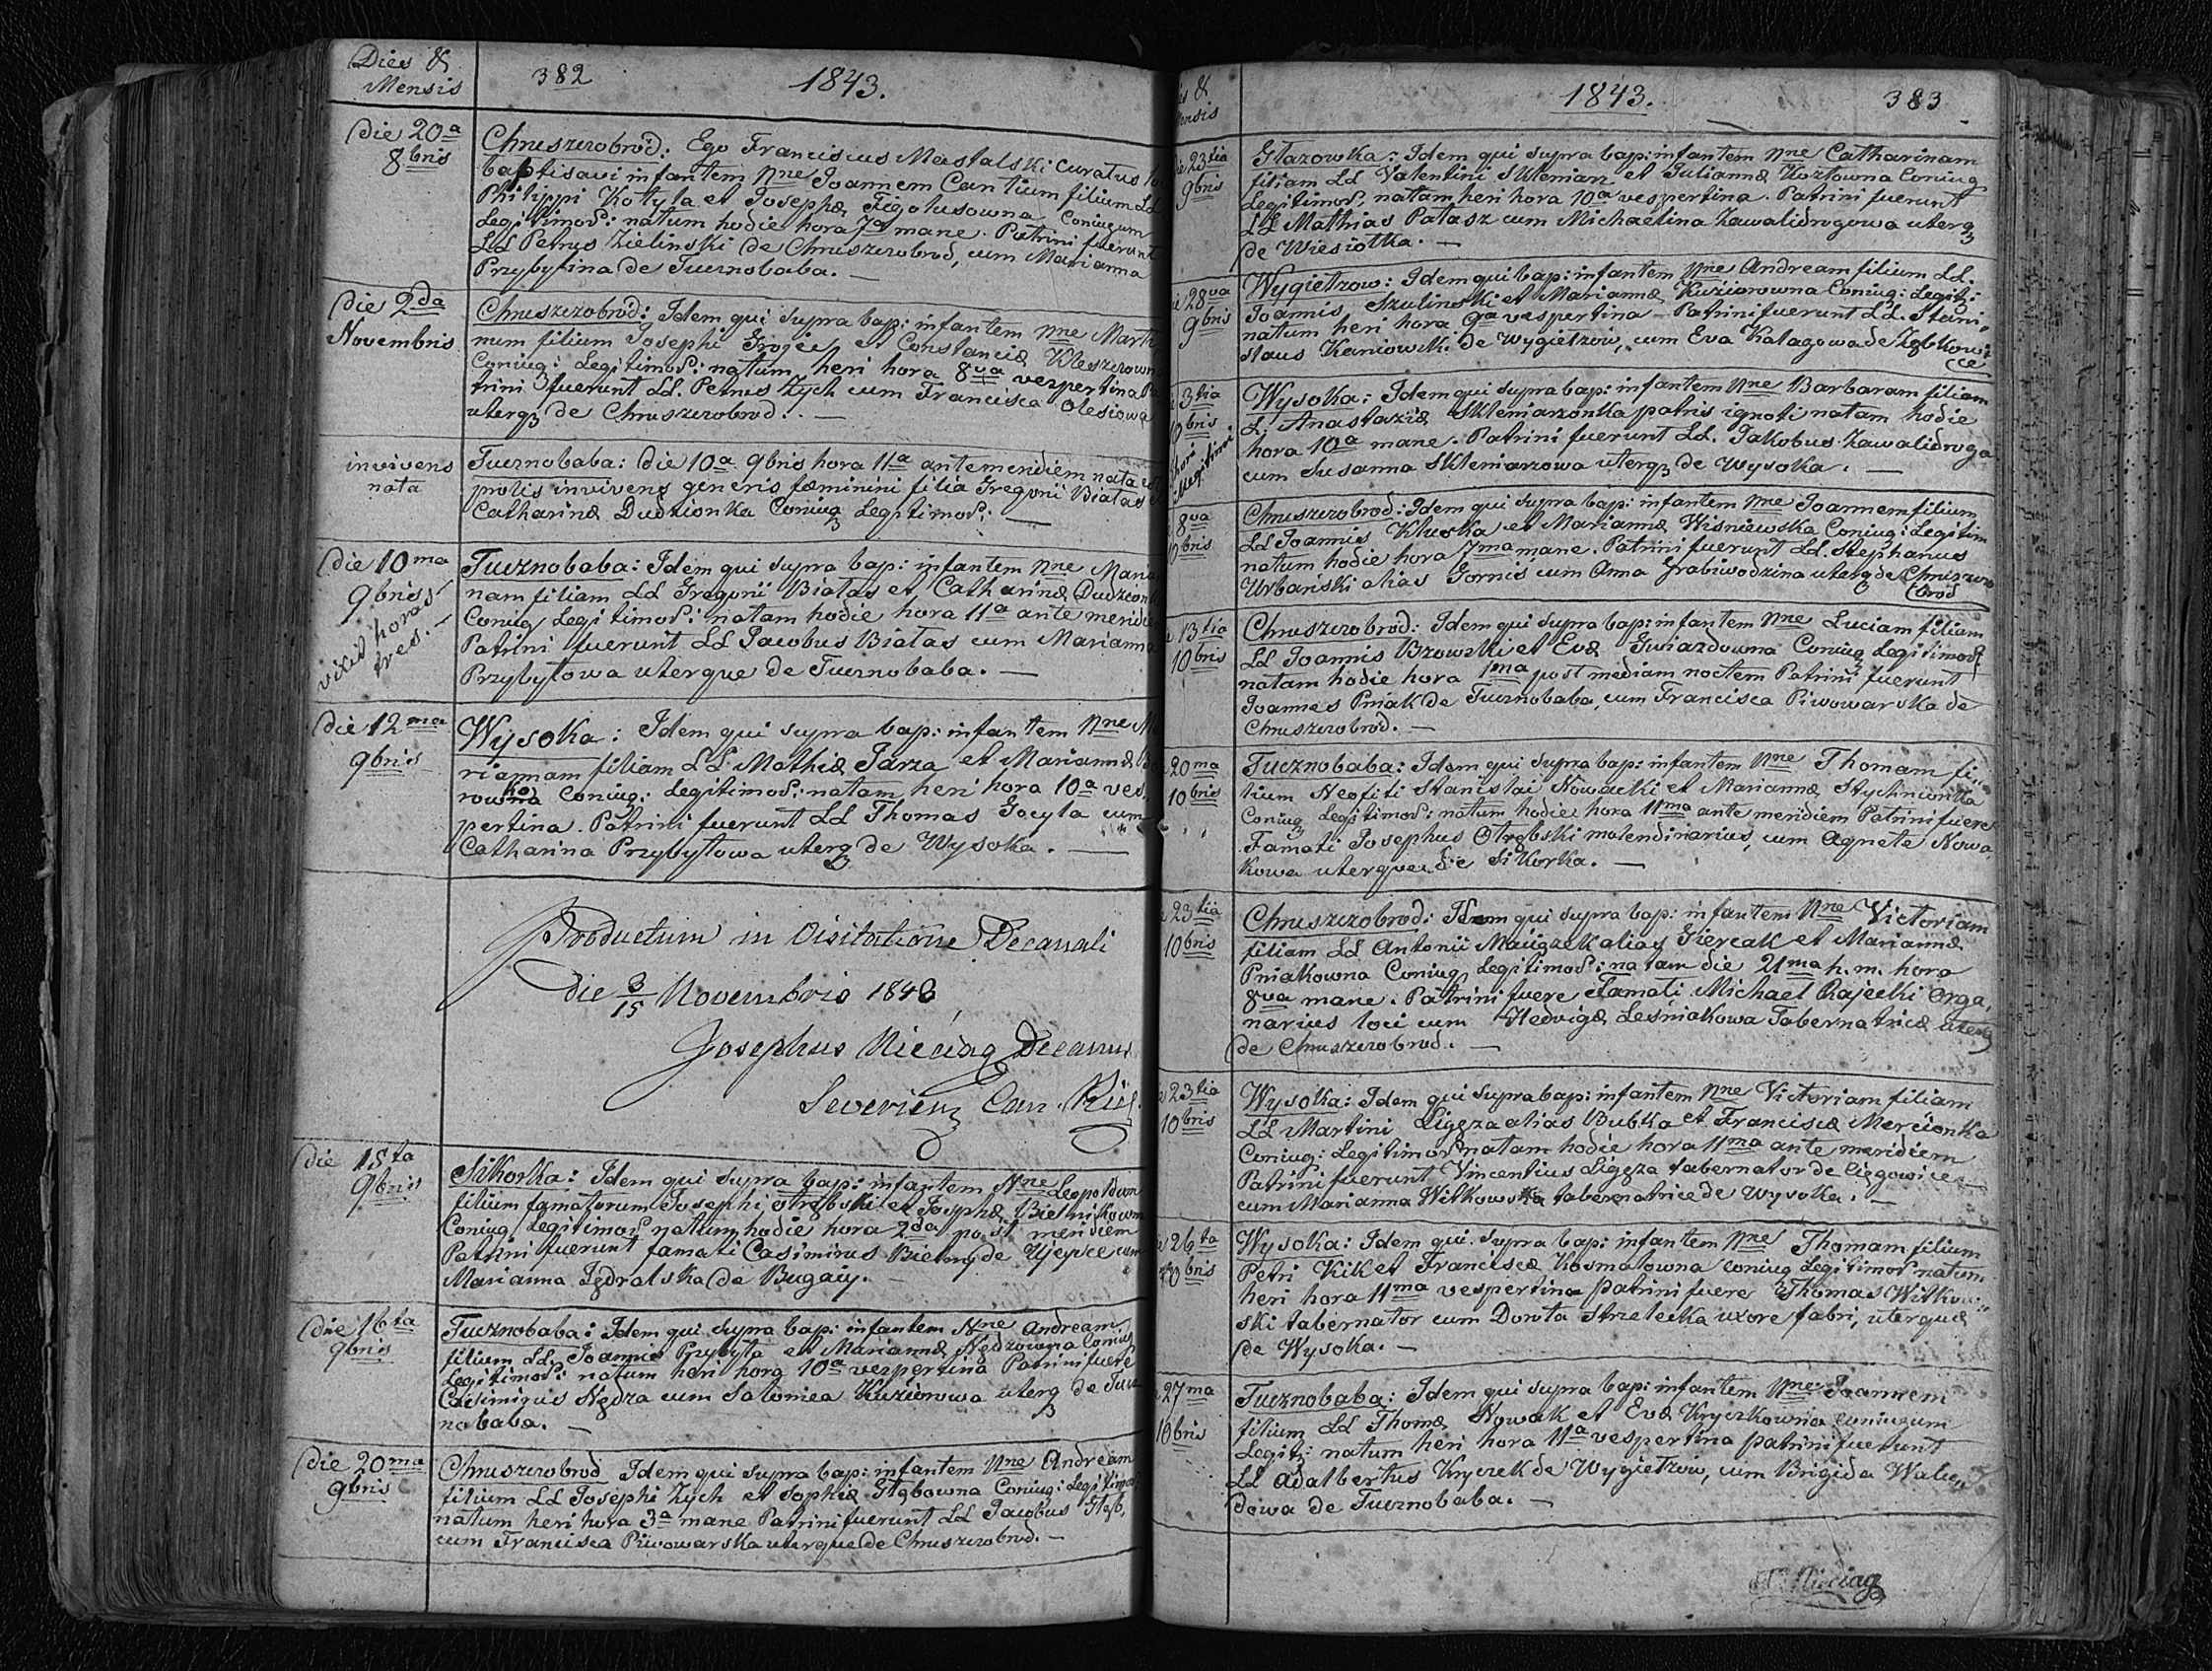 Dies &
Mensis
382
1843.
Die 20a
8bris
Chruszczobród: Ego Franciscus Mastalski Curatus
baptisavi infantem nne Joannem Cantium filium LL
Philippi Kotyla et Josephæ Figolusowna Coniugum
Legitimor: natum hodie hora 7a mane. Patrini fuerunt
LL Petrus Zielinski de Chruszczobrod, cum Marianna
Przybyłina de Tucznobaba. —
Die 2da
Novembris
Chruszczobrod: Idem qui supra bap: infantem nne Marti
num filium Josephi Grojec et Constanciæ Kleszczown
Coniug: Legitimor: natum heri hora 8va vespertina Pa
trini fuerunt LL. Petrus Zych cum Francisca Olesiowa
uterq de Chruszczobrod. —
invivens
nata
Tucznobaba: die 10a 9bris hora 11a antemeridiem nata
prolis invivens generis fæminini filia Gregorii Białas
Catharinæ Dudzionka Coniug Legitimor: —
Die 10ma
9bris
vixit horas
tres. —
Tucznobaba: Idem qui supra bap: infantem nne Maria
nam filiam LL Gregorii Białas et Catharinæ Dudzion
Coniug Legitimor: natam hodie hora 11a ante meridie
Patrini fuerunt LL Jacobus Białas cum Marianna
Przybyłowa uterque de Tucznobaba. —
Die 12ma
9bris
Wysoka: Idem qui supra bap: infantem nne Ma
riannam filiam LL Mathiæ Jarza et Mariannæ
rowna Coniug: Legitimor: natam heri hora 10a ves
pertina. Patrini fuerunt LL Thomas Gocyla cum
Catharina Przybyłowa uterq de Wysoka. —
Productum in Visitatione Decanali
die 3/15 Novembris 1843
Josephus Nieciąg Decanus
Severien Can. Kiel.
Die 15ta
9bris
Sikorka: Idem qui supra bap: infantem Nne Leopoldum
filium famatorum Josephi Otrębski et Josephæ Bielnikown
Coniug Legitimor natum hodie hora 2da post meridiem
Patrini fuerunt famati Casimirus Bielny de Ujejsce cum
Marianna Jędralska de Bugaiy. —
Die 16ta
9bris
Tucznobaba: Idem qui supra bap: infantem Nne Andream
filium LL. Joannis Przybyła et Mariannæ Nędzowna Coniug
Legitimor: natum heri hora 10a vespertina Patrini fuere
Casimirus Nędza cum Salomea Kuziorowa uterq de Tucz
nobaba. —
Die 20ma
9bris
Chruszczobrod Idem qui supra bap: infantem Nne Andream
filium LL Josephi Zych et Sophiæ Głąbowna Coniug: Legitimor
natum heri hora 3a mane Patrini fuerunt LL Jacobus Głąb,
cum Francisca Piwowarska uterque de Chruszczobrod. —
1843.
383
23tia
9bris
Głazowka: Idem qui supra bap: infantem nne Catharinam
filiam LL Valentini Skleniarz et Juliannæ Kozłowna Coniug
Legitimor: natam heri hora 10a vespertina. Patrini fuerunt
LL Mathias Pałasz cum Michaelina Zawalidrogowa uterq
de Wiesiołka. —
28va
9bris
Wygiełzow: Idem qui bap: infantem nne Andream filium LL.
Joannis Szulinski et Mariannæ Kuziorowna Coniug: Legit:
natum heri hora 9a vespertina — Patrini fuerunt LL. Stani,
slaus Kaniowski de Wygiełzow, cum Eva Kałagowa de Ząbkowi
ce
3tia
10bris
thori
illegitimi
Wysoka: Idem qui supra bap: infantem nne Barbaram filiam
L. Anastaziæ Skleniarzonka patris ignoti natam hodie
hora 10a mane. Patrini fuerunt LL. Jakobus Zawalidroga
cum Susanna Skleniarzowa uterq de Wysoka. —
8va
10bris
Chruszczobrod: Idem qui supra bap: infantem nne Joannem filium
LL Joannis Kluska et Mariannæ Wisniewska Coniug: Legitim
natum hodie hora 7ma mane. Patrini fuerunt LL. Stephanus
Urbański alias Gornis cum Anna Grabiwodzina uterq de Chruszczo
brod
13tia
10bris
Chruszczobrod: Idem qui supra bap: infantem nne Luciam filiam
LL Joannis Brzowski et Evæ Gwiazdowna Coniug Legitimor
natam hodie hora 1ma post mediam noctem Patrini fuerunt
Joannes Pniak de Tucznobaba, cum Francisca Piwowarska de
Chruszczobrod. —
20ma
10bris
Tucznobaba: Idem qui supra bap: infantem nne Thomam fi,,
lium Neofiti Stanislai Nowacki et Mariannæ Stychnionka
Coniug Legitimor: natum hodie hora 11ma ante meridiem Patrini fuere
Famati Josephus Otrębski molendinarius, cum Agnete Nowa,
kowa uterque de Sikorka. —
23tia
10bris
Chruszczobrod: Idem qui supra bap: infantem nne Victoriam
filiam LL Antonii alias Gieręak et Mariannæ
Pniakowna Coniug Legitimor: natam die 21ma h. m. hora
8va mane. Patrini fuere Famati Michael Rajecki Orga,
narius loci cum Hedvigæ Leśniakowa Tabernatricæ uterq
de Chruszczobrod. —
23tia
10bris
Wysoka: Idem qui supra bap: infantem nne Victoriam filiam
LL Martini Ligęza alias Bubka et Franciscæ Mercionka
Coniug: Legitimor natam hodie hora 11ma ante meridiem
Patrini fuerunt Vincentius Ligęza tabernator de Ciągowice
cum Marianna Witkowska tabernatrice de Wysoka. —
26ta
10bris
Wysoka: Idem qui supra bap: infantem nne Thomam filium
Petri Kik et Franciscæ Kosmalowna coniug Legitimor natum
heri hora 11ma vespertina patrini fuere Thomas Witkow,,
ski tabernator cum Dorota Strzelecka uxore fabri, uterque
de Wysoka. —
27ma
10bris
Tucznobaba: Idem qui supra bap: infantem nne Joannem
filium LL Thomæ Nowak et Evæ Kryczkowna coniugum
Legit: natum heri hora 11a vespertina patrini fuerunt
LL Adalbertus Kryczek de Wygiełzow, cum Brigida Walen,,
dowa de Tucznobaba. —
Nieciąg